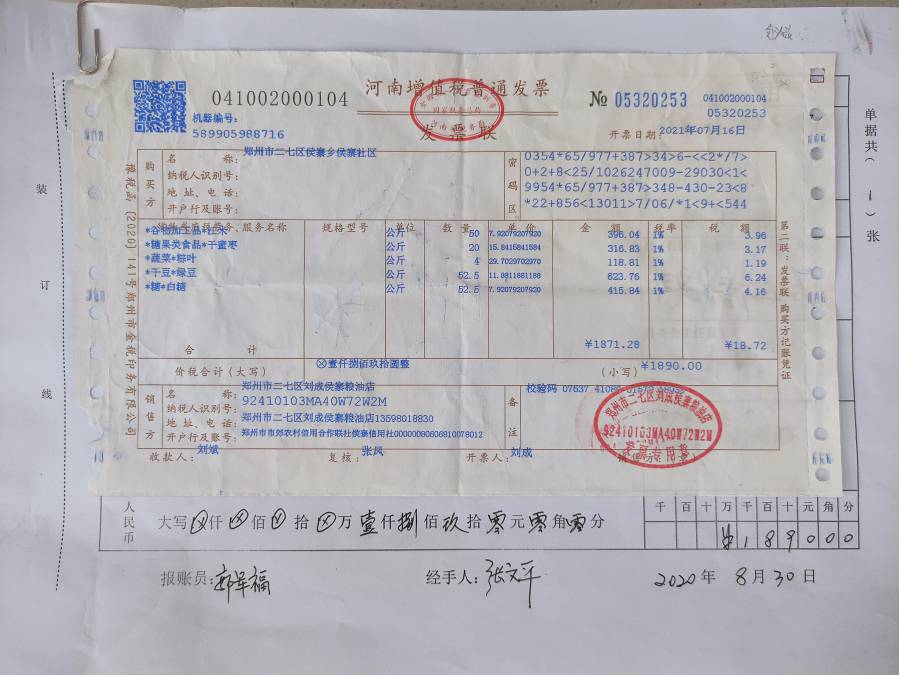 041002000104
河南增值税普通发票
发票联
№ 05320253
041002000104
05320253
机器编号:
589905988716
开票日期: 2021年07月16日
购买方
名 称: 郑州市二七区侯寨乡侯寨社区
纳税人识别号:
地址、电话:
开户行及账号:
密码区
0354*65/977+387>34>6-<<2*/7>
0+2+8<25/1026247009-29030<1<
9954*65/977+387>348-430-23<8
*22+856<13011>7/06/*1<9+<544
货物或应税劳务、服务名称 规格型号 单位 数量 单价 金额 税率 税额
*谷物加工品*江米 公斤 50 7.92079207920 396.04 1% 3.96
*糖果类食品*干蜜枣 公斤 20 15.8415841584 316.83 1% 3.17
*蔬菜*粽叶 公斤 4 29.7029702970 118.81 1% 1.19
*干豆*绿豆 公斤 52.5 11.8811881188 623.76 1% 6.24
*糖*白糖 公斤 52.5 7.92079207920 415.84 1% 4.16
合 计 ¥1871.28 ¥18.72
价税合计(大写) ⓧ壹仟捌佰玖拾圆整 (小写) ¥1890.00
销售方
名 称: 郑州市二七区刘成侯寨粮油店
纳税人识别号: 92410103MA40W72W2M
地址、电话: 郑州市二七区刘成侯寨粮油店13598018830
开户行及账号: 郑州市市郊农村信用合作联社侯寨信用社00000080606810078012
备注
校验码 07637
郑州市二七区刘成侯寨粮油店
92410103MA40W72W2M
发票专用章
收款人: 刘斌
复核: 张凤
开票人: 刘成
第二联:发票联 购买方记账凭证
郑州市金税印务有限公司
单据共(1)张
装
订
线
人民币
大写ⓧ仟ⓧ佰ⓧ拾ⓧ万壹仟捌佰玖拾零元零角零分
千 百 十 万 千 百 十 元 角 分
¥ 1 8 9 0 0 0
报账员:
经手人: 张文平
2020年 8月30日